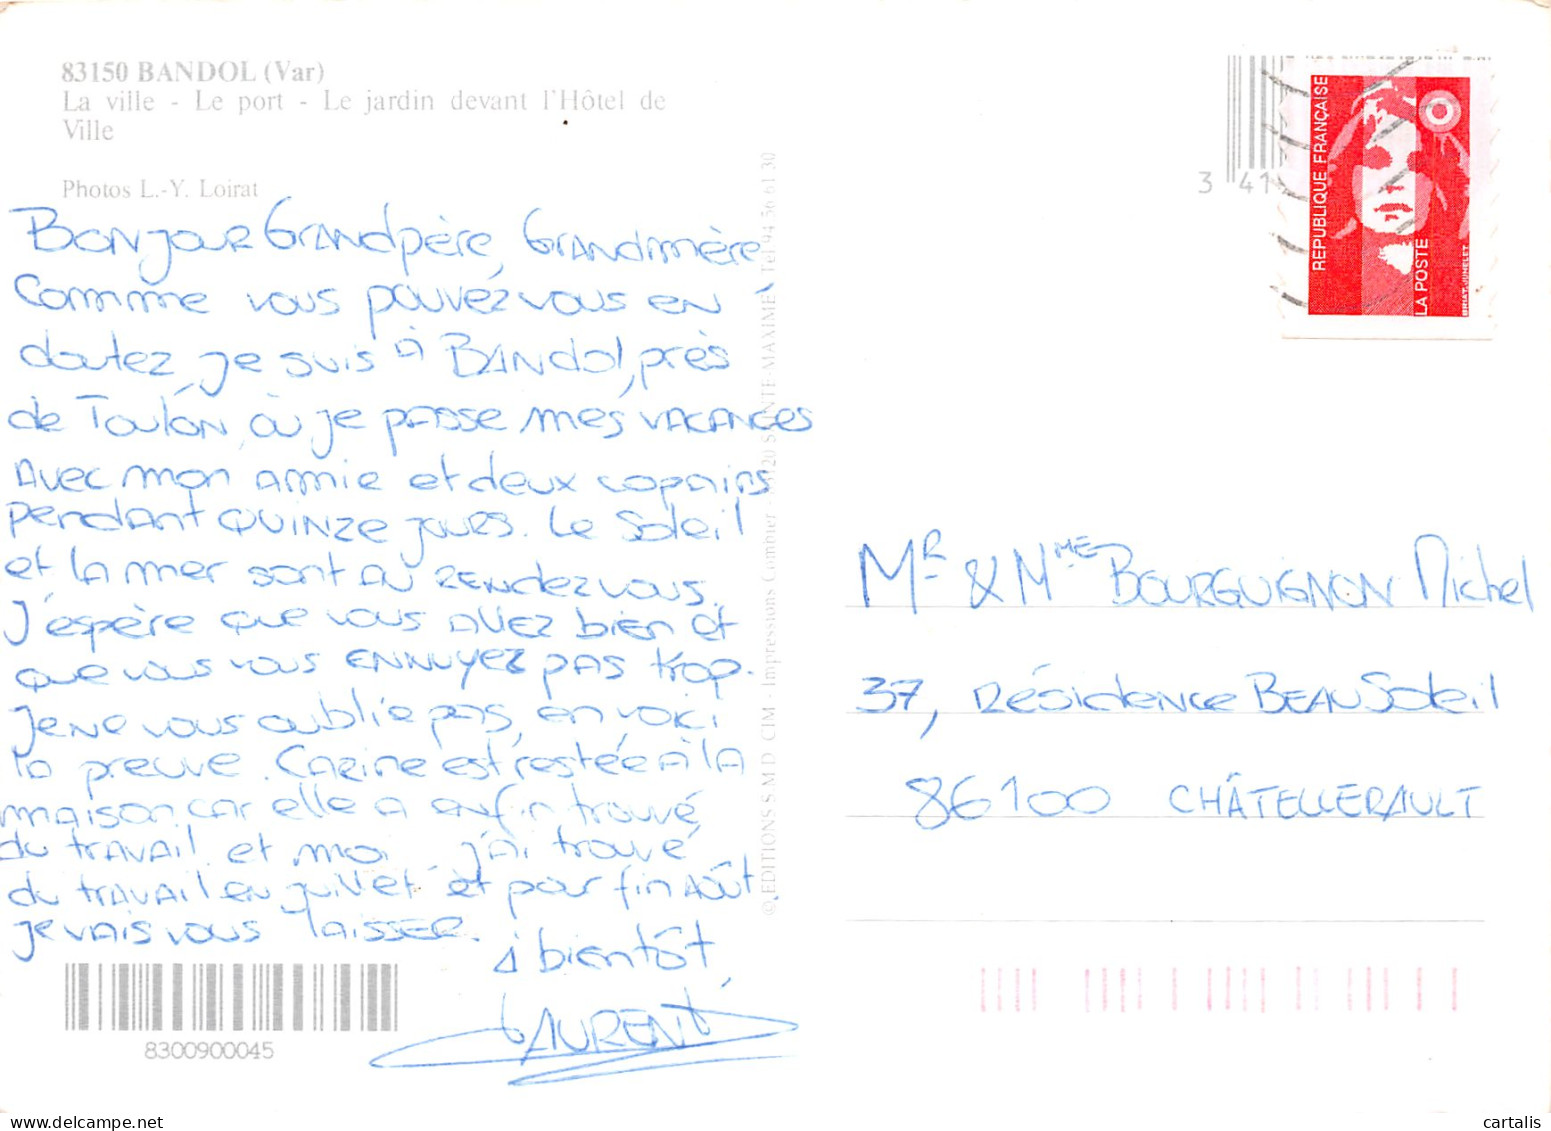 83150 BANDOL (Var)
La ville - Le port - Le jardin devant l'Hôtel de
Ville
Photos L.-Y. Loirat
Bonjour Grandpère, Grandmère
Comme vous pouvez vous en
doutez, je suis à Bandol, près
de Toulon, où je passe mes vacances
avec mon amie et deux copains
pendant quinze jours. Le soleil
et la mer sont au rendez vous.
J'espère que vous allez bien et
que vous vous ennuyez pas trop.
Je ne vous oublie pas, en voici
la preuve. Carine est restée à la
maison car elle a enfin trouvé
du travail et moi j'ai trouvé
du travail en juillet et pour fin août
je vais vous laisser.
à bientôt,
LAURENT
8300900045
© EDITIONS S.M.D. CIM - Impressions Combier - SAINTE-MAXIME Tél 94 56 61 30
3 41
REPUBLIQUE FRANÇAISE
LA POSTE
BRIAT-JUMELET
Mr & Mme BOURGUIGNON Michel
37, Résidence BEAU Soleil
86100 CHÂTELLERAULT
www.delcampe.net
cartalis